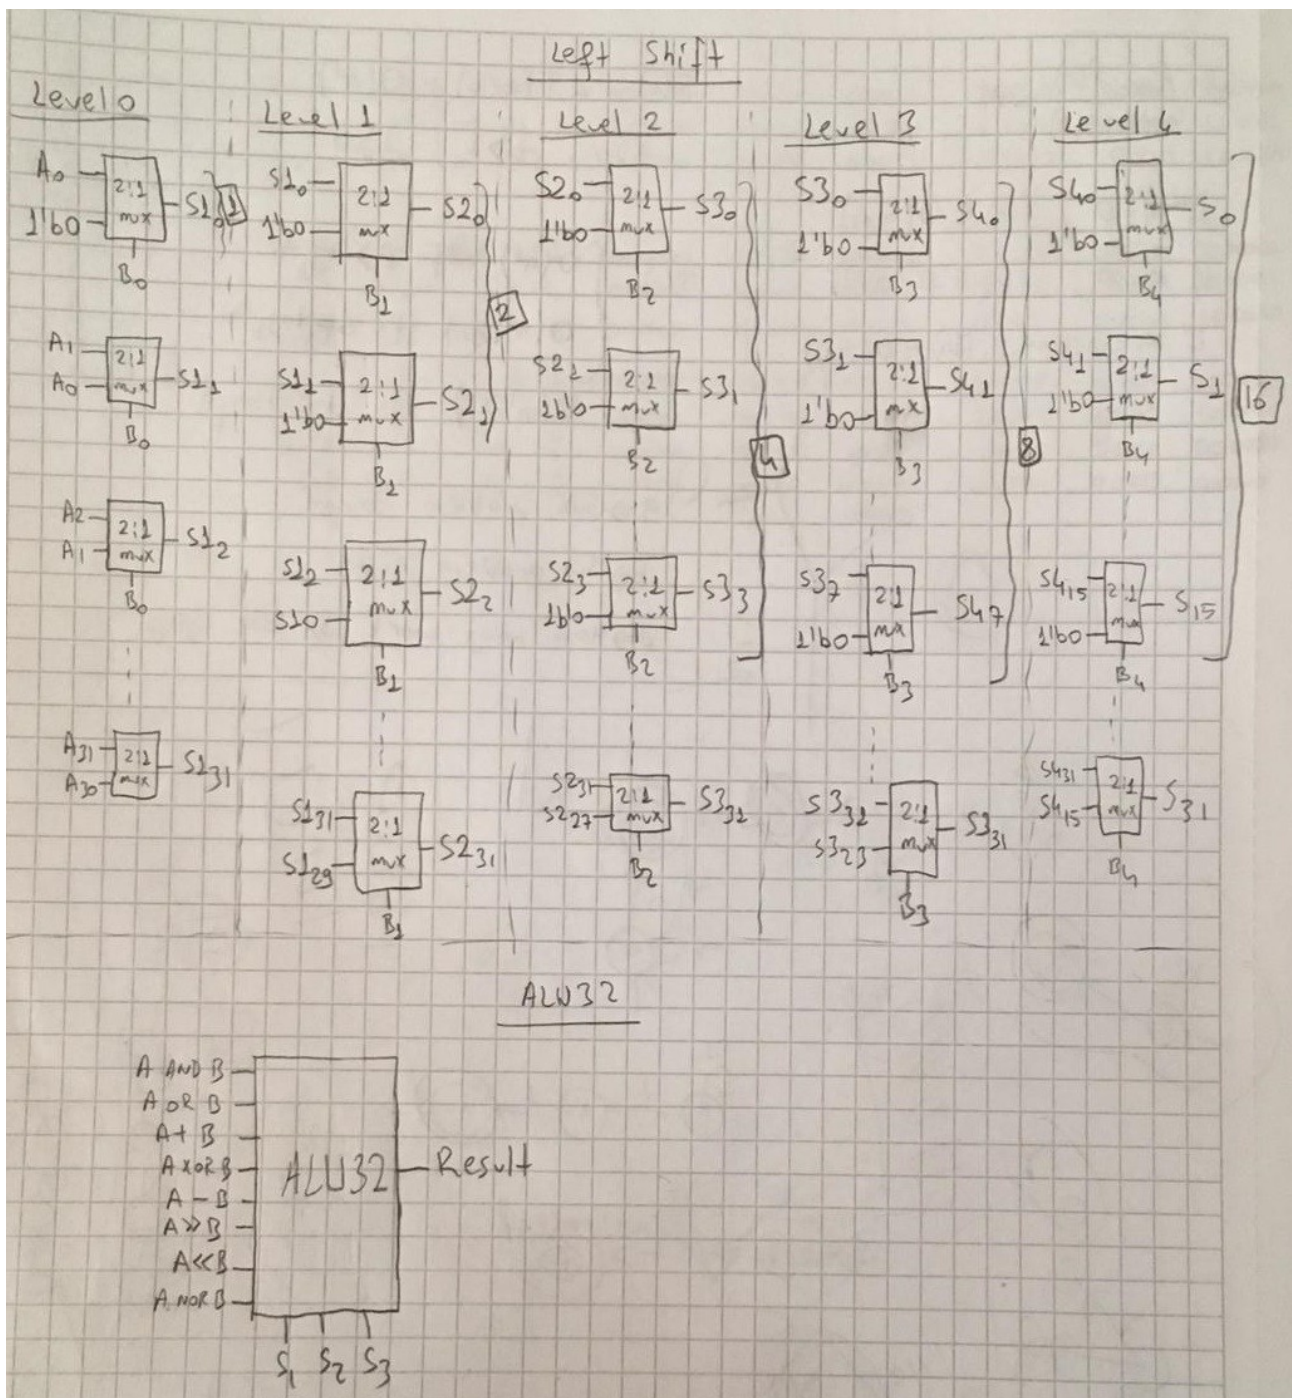 Left Shift
Level 0
A0
1'b0
2:1
mux
S10
1
B0
A1
A0
2:1
mux
S11
B0
A2
A1
2:1
mux
S12
B0
A31
A30
2:1
mux
S131
Level 1
S10
1'b0
2:1
mux
S20
B1
2
S11
1'b0
2:1
mux
S21
B1
S12
S10
2:1
mux
S22
B1
S131
S129
2:1
mux
S231
B1
Level 2
S20
1'b0
2:1
mux
S30
B2
S21
1b'0
2:1
mux
S31
B2
4
S23
1b'0
2:1
mux
S33
B2
S231
S227
2:1
mux
S331
B2
Level 3
S30
1'b0
2:1
mux
S40
B3
S31
1'b0
2:1
mux
S41
B3
8
S37
1'b0
2:1
mux
S47
B3
S331
S323
2:1
mux
S331
B3
Level 4
S40
1'b0
2:1
mux
S0
B4
S41
1'b0
2:1
mux
S1
B4
16
S415
1'b0
2:1
mux
S15
B4
S431
S415
2:1
mux
S31
B4
ALU32
A AND B
A OR B
A+B
A XOR B
A-B
A>>B
A<<B
A NOR B
ALU32
Result
S1 S2 S3